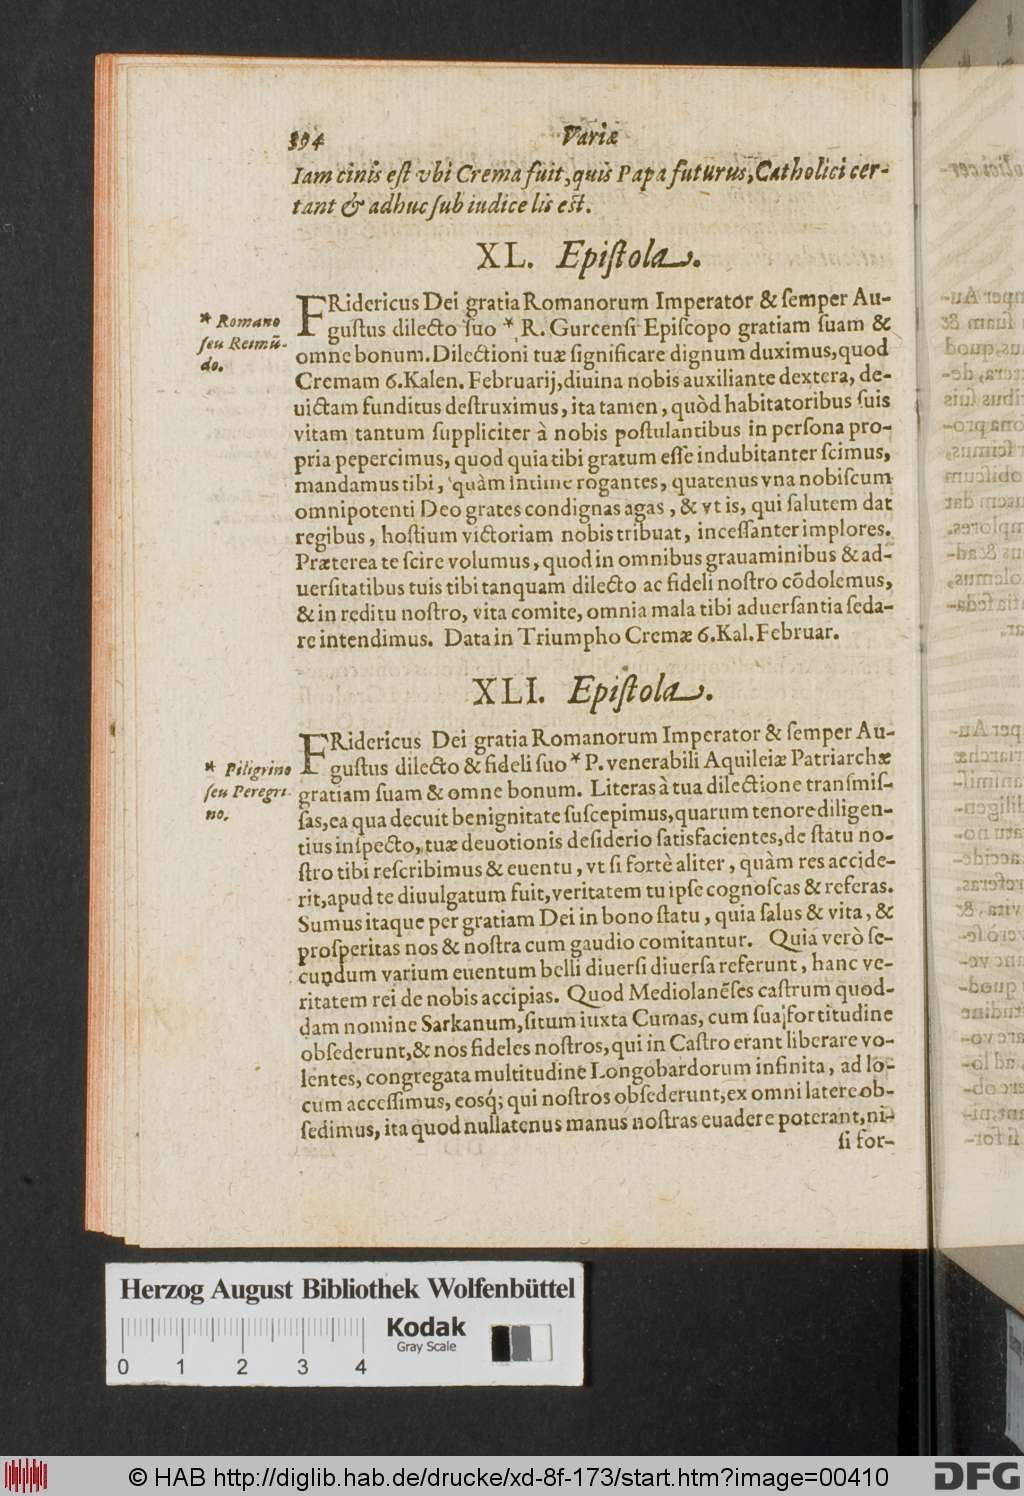 394 Variæ
Iam cinis est vbi Crema fuit, quis Papa futurus, Catholici cer-
tant & adhuc sub iudice lis est.
XL. Epistola.
* Romano
seu Reimũ-
do.
FRidericus Dei gratia Romanorum Imperator & semper Au-
gustus dilecto suo * R. Gurcensi Episcopo gratiam suam &
omne bonum. Dilectioni tuæ significare dignum duximus, quod
Cremam 6. Kalen. Februarij, diuina nobis auxiliante dextera, de-
uictam funditus destruximus, ita tamen, quòd habitatoribus suis
vitam tantum suppliciter à nobis postulantibus in persona pro-
pria pepercimus, quod quia tibi gratum esse indubitanter scimus,
mandamus tibi, quàm intime rogantes, quatenus vna nobiscum
omnipotenti Deo grates condignas agas, & vt is, qui salutem dat
regibus, hostium victoriam nobis tribuat, incessanter implores.
Præterea te scire volumus, quod in omnibus grauaminibus & ad-
uersitatibus tuis tibi tanquam dilecto ac fideli nostro cõdolemus,
& in reditu nostro, vita comite, omnia mala tibi aduersantia seda-
re intendimus. Data in Triumpho Cremæ 6. Kal. Februar.
XLI. Epistola.
* Piligrino
seu Peregri-
no.
FRidericus Dei gratia Romanorum Imperator & semper Au-
gustus dilecto & fideli suo * P. venerabili Aquileiæ Patriarchæ
gratiam suam & omne bonum. Literas à tua dilectione transmis-
sas, ea qua decuit benignitate suscepimus, quarum tenore diligen-
tius inspecto, tuæ deuotionis desiderio satisfacientes, de statu no-
stro tibi rescribimus & euentu, vt si fortè aliter, quàm res accide-
rit, apud te diuulgatum fuit, veritatem tu ipse cognoscas & referas.
Sumus itaque per gratiam Dei in bono statu, quia salus & vita, &
prosperitas nos & nostra cum gaudio comitantur. Quia verò se-
cundum varium euentum belli diuersi diuersa referunt, hanc ve-
ritatem rei de nobis accipias. Quod Mediolanẽses castrum quod-
dam nomine Sarkanum, situm iuxta Cumas, cum sua fortitudine
obsederunt, & nos fideles nostros, qui in Castro erant liberare vo-
lentes, congregata multitudine Longobardorum infinita, ad lo-
cum accessimus, eosq́; qui nostros obsederunt, ex omni latere ob-
sedimus, ita quod nullatenus manus nostras euadere poterant, ni-
si for-
Herzog August Bibliothek Wolfenbüttel
Kodak
Gray Scale
0 1 2 3 4
© HAB http://diglib.hab.de/drucke/xd-8f-173/start.htm?image=00410
DFG